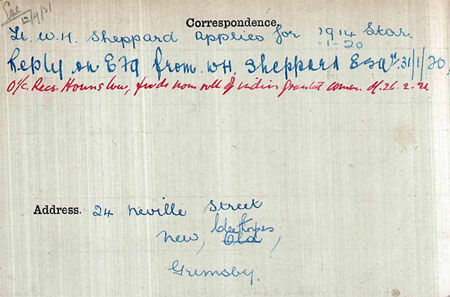 12/9/21
Correspondence.
Lt. W.H. Sheppard applies for 1914 Star.
1-20
Reply on EF9 from W.H. Sheppard Esqr. 31/1/20.
O/c. Recs. Hounslow, fwds nom roll of indivs granted comm. d/. 26-2-21
Address. 24 Neville Street
New, Old, Cleethorpes
Grimsby.